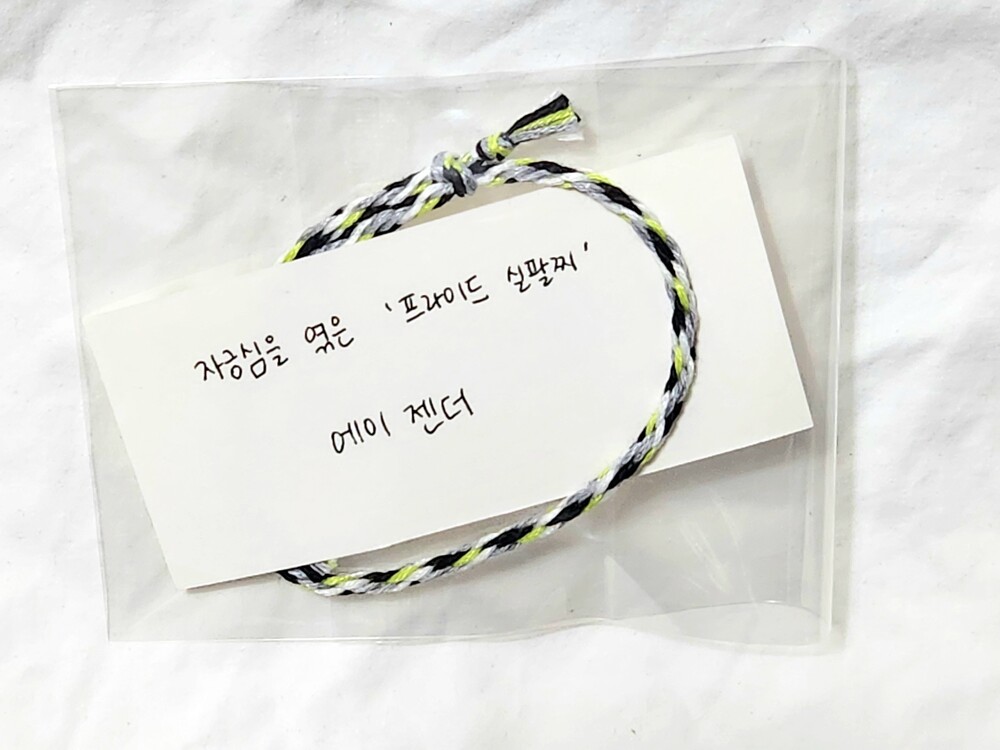 자긍심을 엮은 '프라이드 실팔찌'
에이 젠더